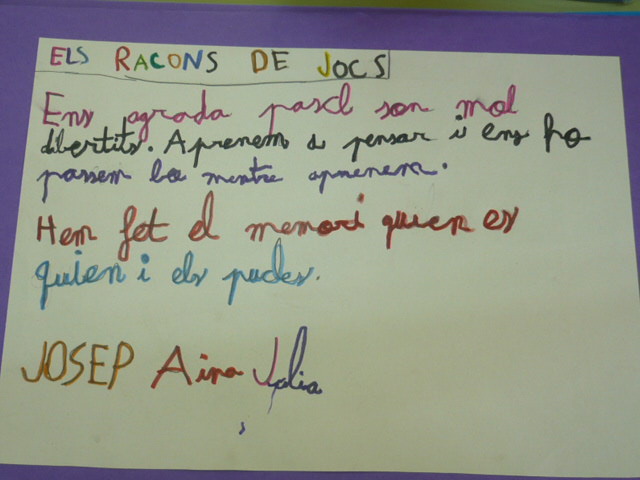 ELS RACONS DE JOCS
Ens agrada pascl son mol
dibertits. Aprenem a pensar i ens ho
passem be mentre aprenem.
Hem fet el memori quien es
quien i els pucles.
JOSEP Aina Julia